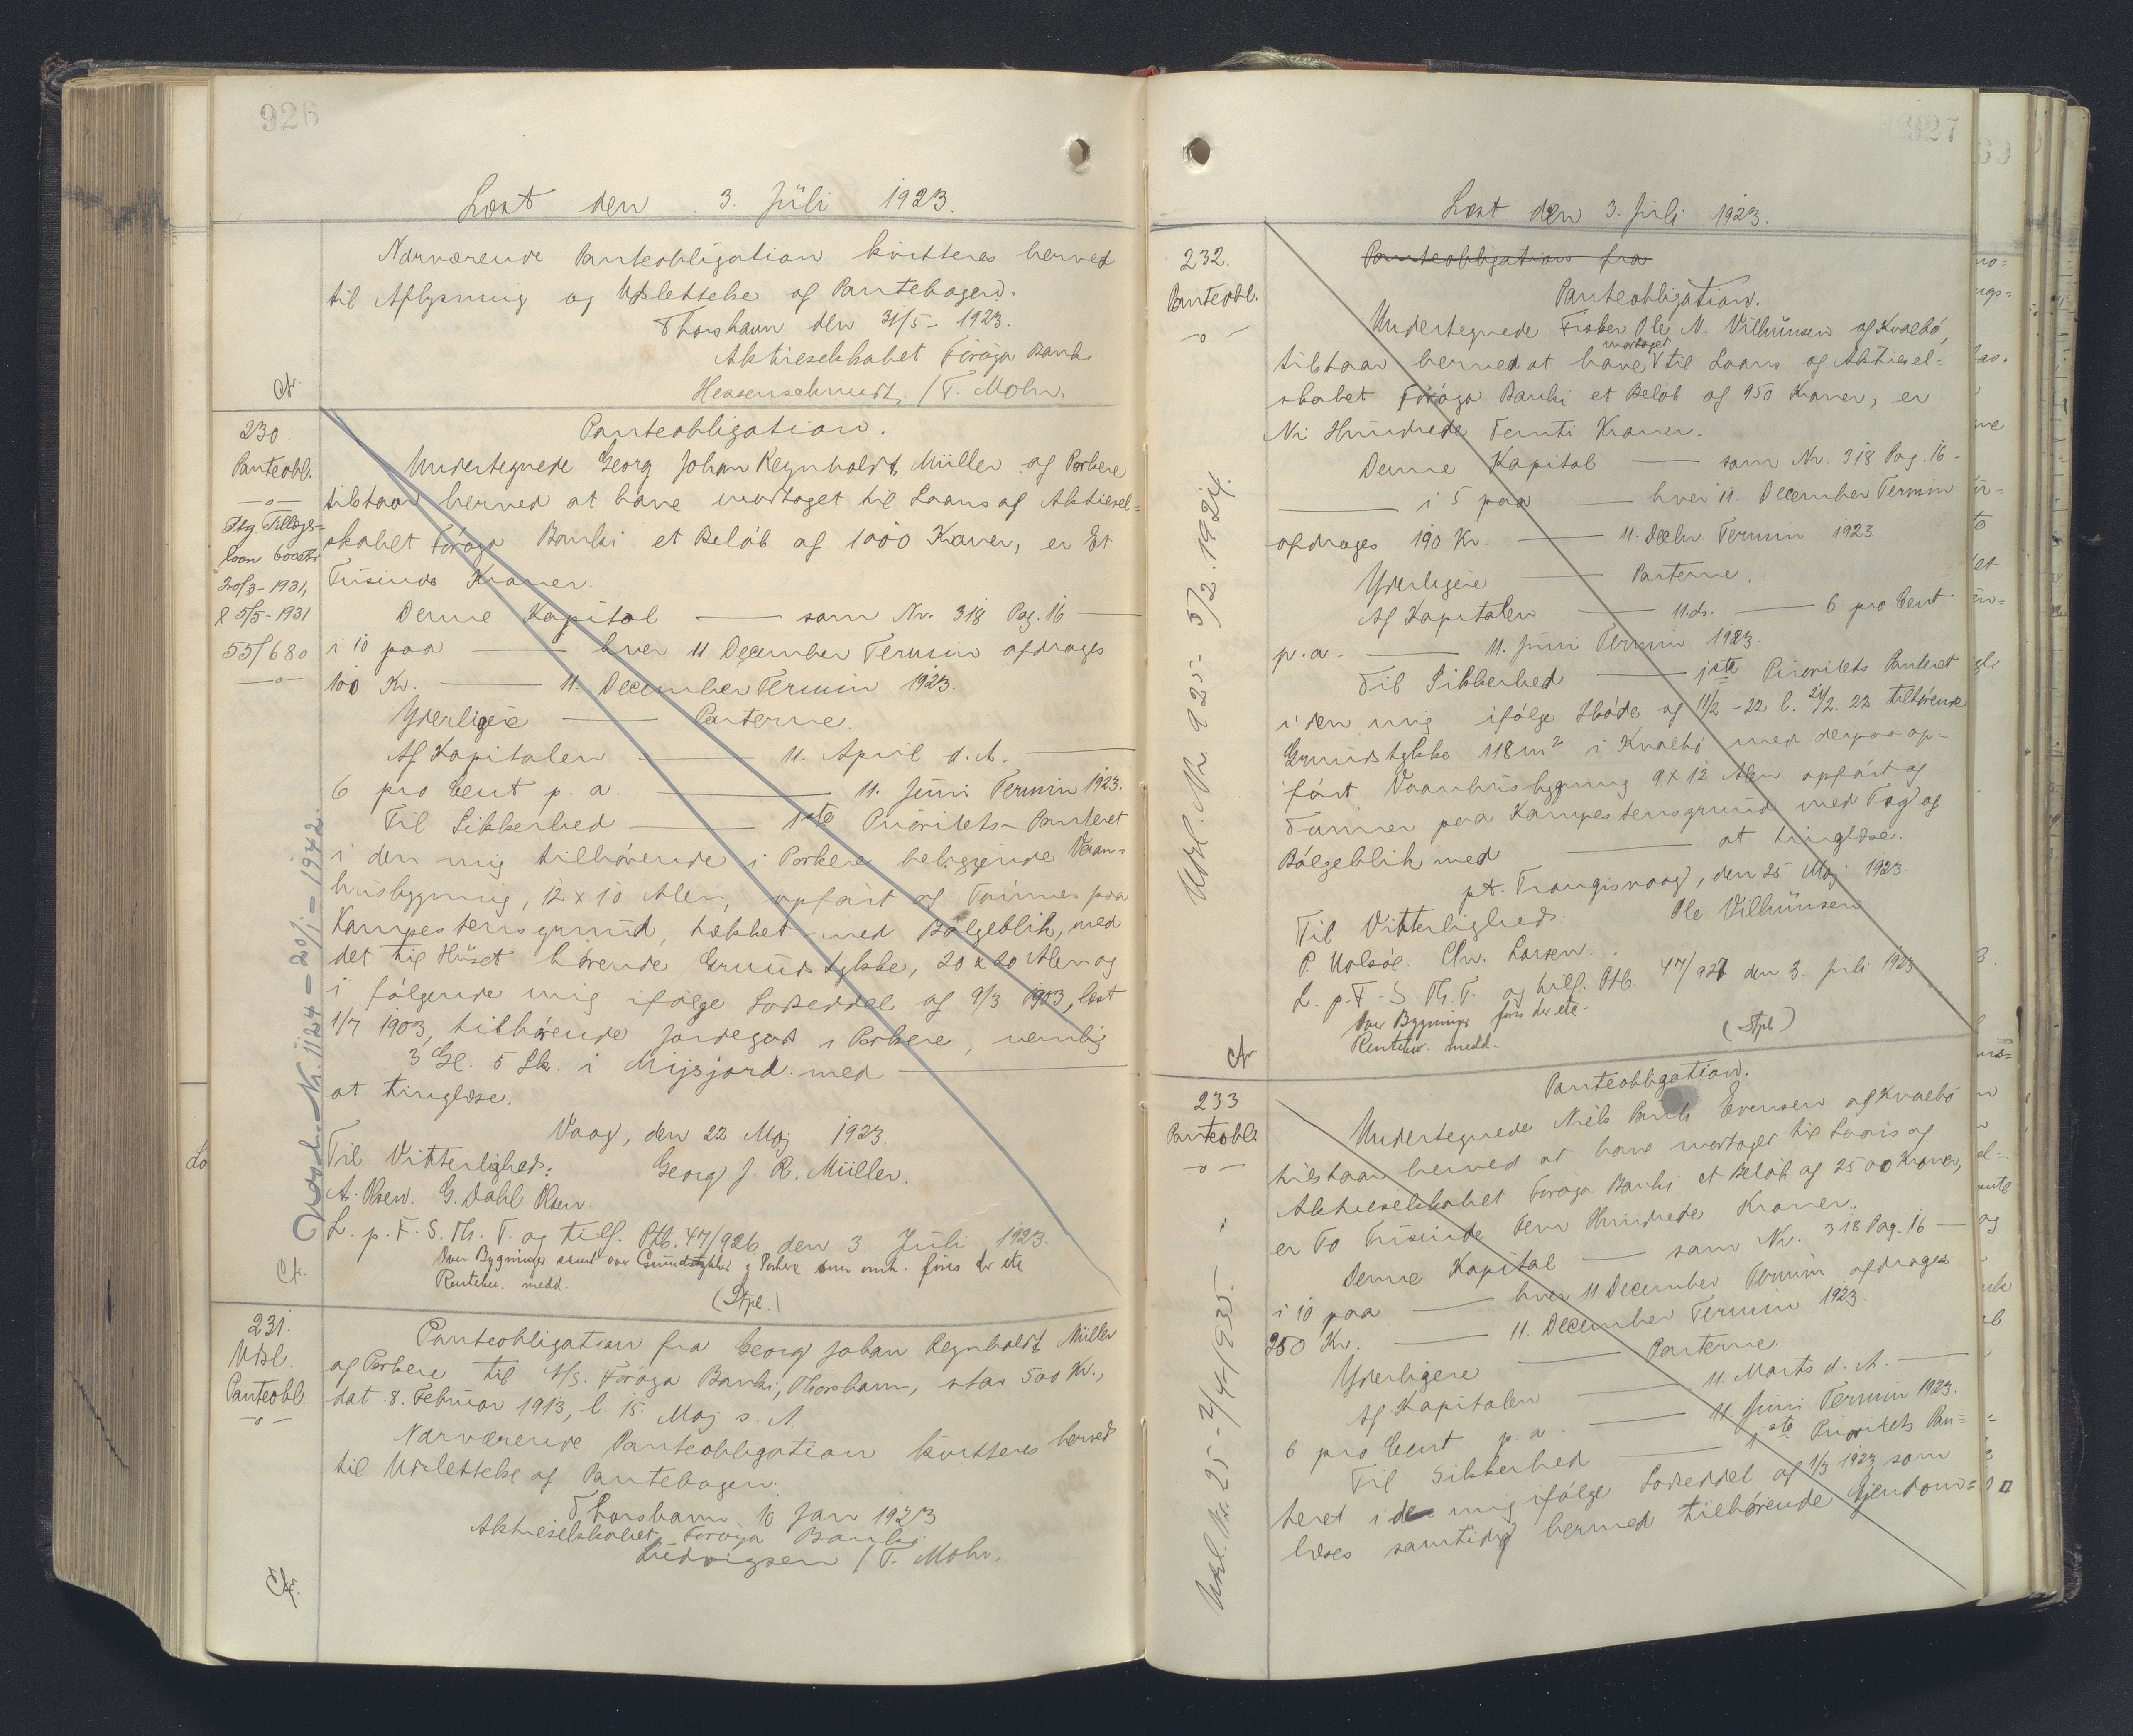 926
Læst den 3. Júli 1923.
Nærværende Panteobligation kvitteres herved
til Aflysning og Udslettelse af Pantebogen.
Thorshavn den 31/5 - 1923.
Aktieselskabet Föroya Banki
Hessenschmidt. / T. Mohr.
Cfr.
230.
Panteobl.
—o—
Ftg. Tillægs-
loan 600 Kr
20/3 - 1931,
l. 5/5 - 1931
55/680
—o—
Nr. 1124 - 20/1 - 1942.
Panteobligation.
Undertegnede Georg Johan Reynholdt Müller af Porkere
tilstaar herved at have modtaget til Laans af Aktiesel-
skabet Föroya Banki et Beløb af 1000 Kroner, er Et
Túsinde Kroner.
Denne Kapital — som Nr. 318 Pag. 16 —
i 10 paa — hver 11 December Termin afdrages
100 Kr. — 11. December Termin 1923.
Yderligere — Parterne.
Af Kapitalen — 11. April d. A. —
6 pro Cent p. a. — 11. Júni Termin 1923.
Til Sikkerhed — 1ste Prioritets-Panteret
i den mig tilhørende i Porkere beliggende Vaan-
húsbygning, 12 x 10 Alen, opført af Tømmer paa
Kampestensgrund, tækket med Bølgeblik, med
det til Húset hørende Grundstykke, 20 x 20 Alen og
i følgende mig ifølge Lodseddel af 9/3 1903, læst
1/7 1903, tilhørende Jordegods i Porkere, nemlig
3 Gl. 5 Sk. i Mijsjord med —
at tinglæse.
Vaag, den 22 Maj 1923.
Til Vitterlighed: Georg J. R. Müller.
A. Olsen. G. Dahl Olsen.
L. p. F. S. Th. T. og tilf. Ptb. 47/926 den 3. Júli 1923.
Over Bygninger samt over Grundstykket i Porkere som omh. føres der etc
Renteklv. medd. (Stpl.)
Cfr.
231.
Udsl.
Panteobl.
—o—
Panteobligation fra Georg Johan Reynholdt Müller
af Porkere til A/S. Föroya Banki, Thorshavn, stor 500 Kr.,
dat. 8. Februar 1913, l. 15. Maj s. A.
Nærværende Panteobligation kvitteres herved
til Udslettelse af Pantebogen.
Thorshavn 16 Jan 1923
Aktieselskabet Föroya Banki
Ludvigsen / T. Mohr.
Cfr.
927
Læst den 3. Júli 1923.
232.
Panteobl.
—o—
Udsl. Nr. 925 - 5/2. 1924.
Panteobligation fra
Panteobligation.
Undertegnede Fisker Ole N. Vilhúnsen af Kvalbø,
tilstaar herved at have modtaget til Laans af Aktiesel-
skabet Föroya Banki et Beløb af 950 Kroner, er
Ni Húndrede Femti Kroner.
Denne Kapital — som Nr. 318 Pag. 16 -
— i 5 paa — hver 11. December Termin
afdrages 190 Kr. — 11. Decbr. Termin 1923
Yderligere — Parterne.
Af Kapitalen — 11. ds. — 6 pro Cent
p. a. — 11. Júni Termin 1923.
Til Sikkerhed — 1ste Prioritets Panteret
i den mig ifølge Skøde af 11/2 - 22 l. 21/2. 22 tilhørende
Grundstykke 118 m² i Kvalbø med derpaa op-
ført Vaanhúsbygning 9 x 12 Alen opført af
Tømmer paa Kampestensgrund med Tag af
Bølgeblik med — at tinglæse.
pt. Trangisvaag, den 25 Maj 1923.
Til Vitterlighed: Ole Vilhúnsen
P. Holsøe. Chr. Larsen.
L. p. F. S. Th. T. og tilf. Ptb. 47/927 den 3. júli 1923
Over Bygninger føres der etc.
Renteklv. medd. (Stpl)
Cfr
233
Panteobl.
—o—
Udsl. Nr. 25 - 2/4 1935.
Panteobligation.
Undertegnede Niels Pauli Evensen af Kvalbø
tilstaar herved at have modtaget til Laans af
Aktieselskabet Föroya Banki et Beløb af 2500 Kroner,
er To Túsinde Fem Húndrede Kroner.
Denne Kapital — som Nr. 318 Pag. 16 —
i 10 paa — hver 11 December Termin afdrages
250 Kr. — 11. December Termin 1923.
Yderligere — Parterne.
Af Kapitalen — 11. Marts d. A. —
6 pro Cent p. a. — 11 Júni Termin 1923.
Til Sikkerhed — 1ste Prioritets Pan-
teret i de mig ifølge Lodseddel af 1/3 1923 som
læses samtidig hermed tilhørende Ejendom-